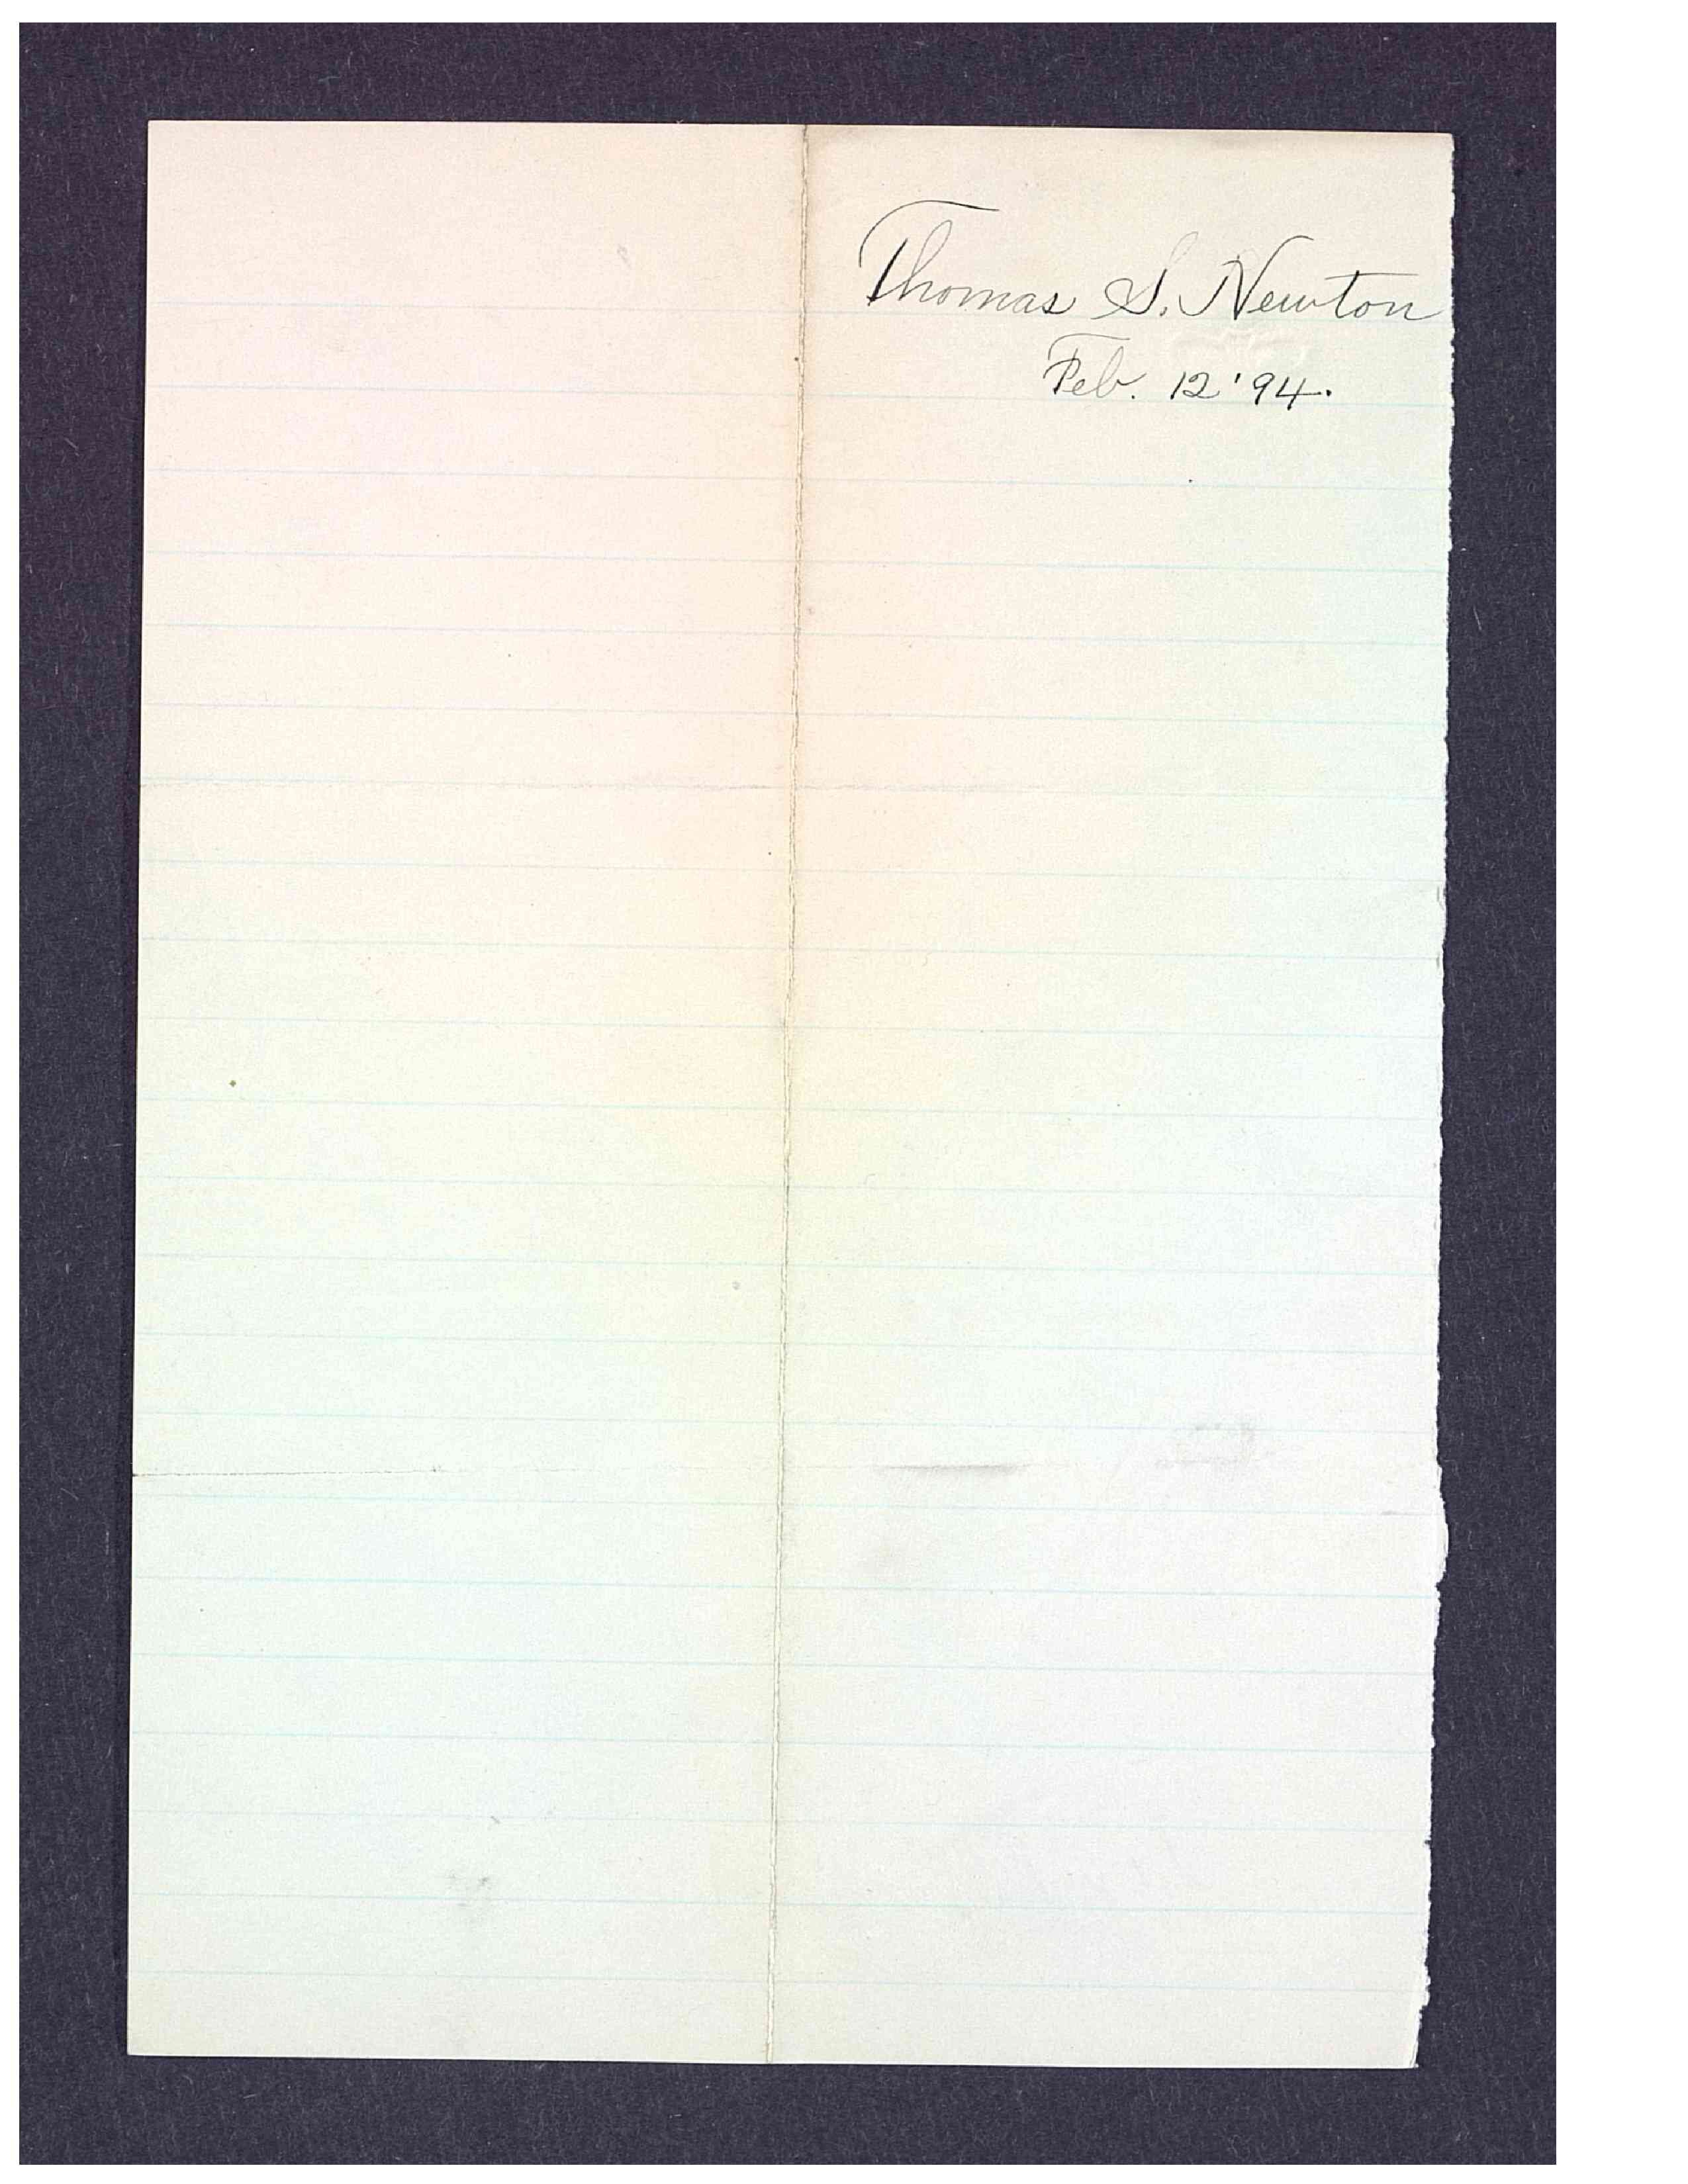 Thomas S. Newton
Feb. 12 '94.